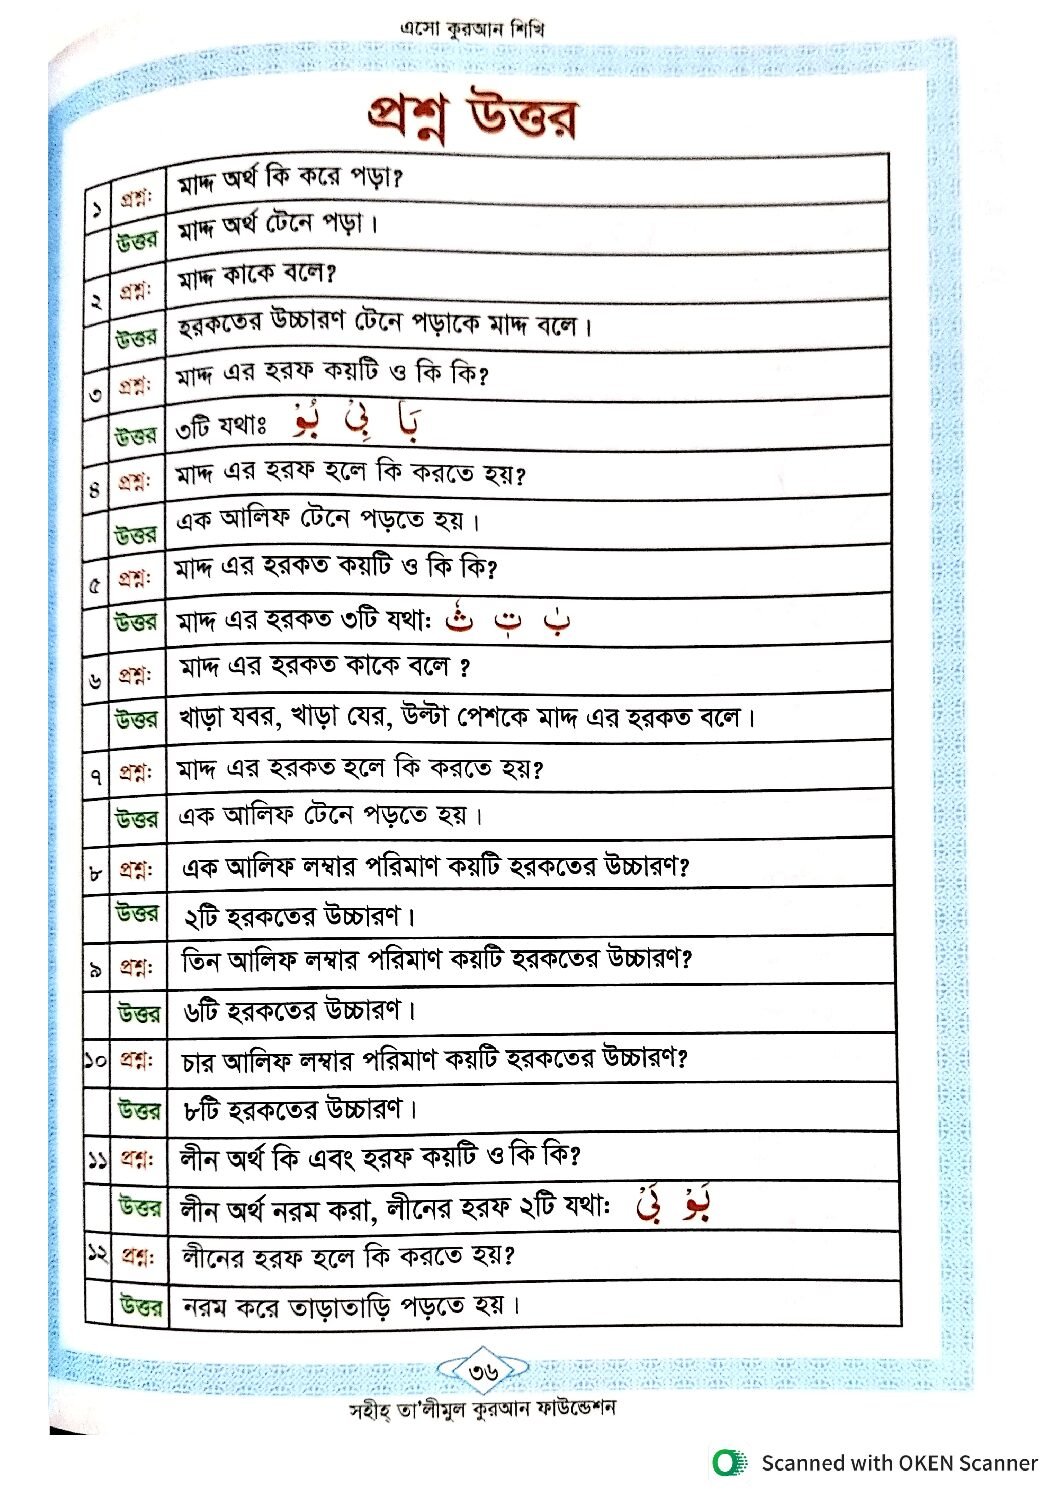 এসো কুরআন শিখি
প্রশ্ন উত্তর
১ প্রশ্ন: মাদ্দ অর্থ কি করে পড়া?
উত্তর মাদ্দ অর্থ টেনে পড়া।
২ প্রশ্ন: মাদ্দ কাকে বলে?
উত্তর হরকতের উচ্চারণ টেনে পড়াকে মাদ্দ বলে।
৩ প্রশ্ন: মাদ্দ এর হরফ কয়টি ও কি কি?
উত্তর ৩টি যথাঃ بُوْ بِيْ بَا
৪ প্রশ্ন: মাদ্দ এর হরফ হলে কি করতে হয়?
উত্তর এক আলিফ টেনে পড়তে হয়।
৫ প্রশ্ন: মাদ্দ এর হরকত কয়টি ও কি কি?
উত্তর মাদ্দ এর হরকত ৩টি যথা: ثٗ تٖ بٰ
৬ প্রশ্ন: মাদ্দ এর হরকত কাকে বলে ?
উত্তর খাড়া যবর, খাড়া যের, উল্টা পেশকে মাদ্দ এর হরকত বলে।
৭ প্রশ্ন: মাদ্দ এর হরকত হলে কি করতে হয়?
উত্তর এক আলিফ টেনে পড়তে হয়।
৮ প্রশ্ন: এক আলিফ লম্বার পরিমাণ কয়টি হরকতের উচ্চারণ?
উত্তর ২টি হরকতের উচ্চারণ।
৯ প্রশ্ন: তিন আলিফ লম্বার পরিমাণ কয়টি হরকতের উচ্চারণ?
উত্তর ৬টি হরকতের উচ্চারণ।
১০ প্রশ্ন: চার আলিফ লম্বার পরিমাণ কয়টি হরকতের উচ্চারণ?
উত্তর ৮টি হরকতের উচ্চারণ।
১১ প্রশ্ন: লীন অর্থ কি এবং হরফ কয়টি ও কি কি?
উত্তর লীন অর্থ নরম করা, লীনের হরফ ২টি যথা: بَيْ بَوْ
১২ প্রশ্ন: লীনের হরফ হলে কি করতে হয়?
উত্তর নরম করে তাড়াতাড়ি পড়তে হয়।
৩৬
সহীহ্ তা'লীমুল কুরআন ফাউন্ডেশন
Scanned with OKEN Scanner